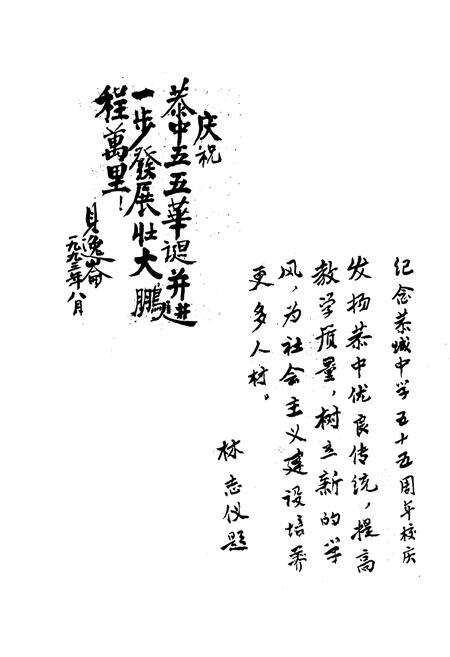 庆祝
恭中五五華诞并進
一步發展壮大鵬
程萬里!
逸崙
一九九三年八月
纪念恭城中学五十五周年校庆
发扬恭中优良传统,提高
教学质量,树立新的学
风,为社会主义建设培养
更多人材。
林志仪题